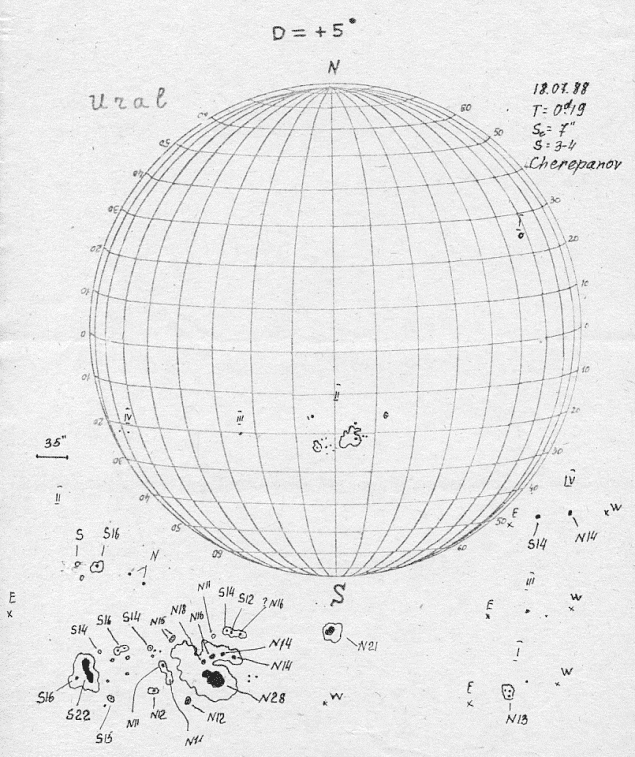 D = +5°
N
Ural
18.07.88
T = 0ᵈ.19
Sc = 7"
S = 3-4
Cherepanov
60
50
30
20
10
0
10
20
30
40
50
60
40
30
20
10
0
10
20
30
40
50
60
I
II
III
IV
S
35"
II
S
S16
N
E
S14
S16
S14
N15
N18
N16
N11
S14
S12
?N16
N14
N14
N28
N12
N11
N12
N11
S15
S22
S16
N21
W
IV
E
S14
N14
W
III
E
W
I
E
N13
W